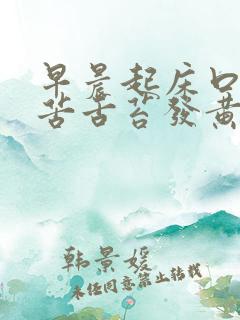 早晨起床口
苦舌苔發黄
韩景媛
未经同意禁止转载